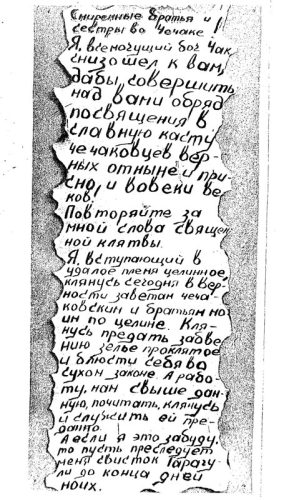 Смиренные братья и
сестры во Чечаке!
Я, всемогущий бог Чак,
снизошел к вам,
дабы совершить
над вами обряд
посвящения в
славную касту
чечаковцев вер-
ных отныне и при-
сно, и вовеки ве-
ков!
Повторяйте за
мной слова священ
ной клятвы.
Я, вступающий в
удалое племя целинное,
клянусь сегодня в вер-
ности заветам чеча-
ковским и братьям мо-
им по целине. Кля-
нусь предать забве-
нию зелье проклятое
и блюсти себя во
сухом законе. А рабо-
ту, нам свыше дан-
ную, почитать, клянусь
и служить ей пре-
данно.
А если я это забуду,
то пусть преследует
меня свисток Тарагу-
ли до конца дней
моих.